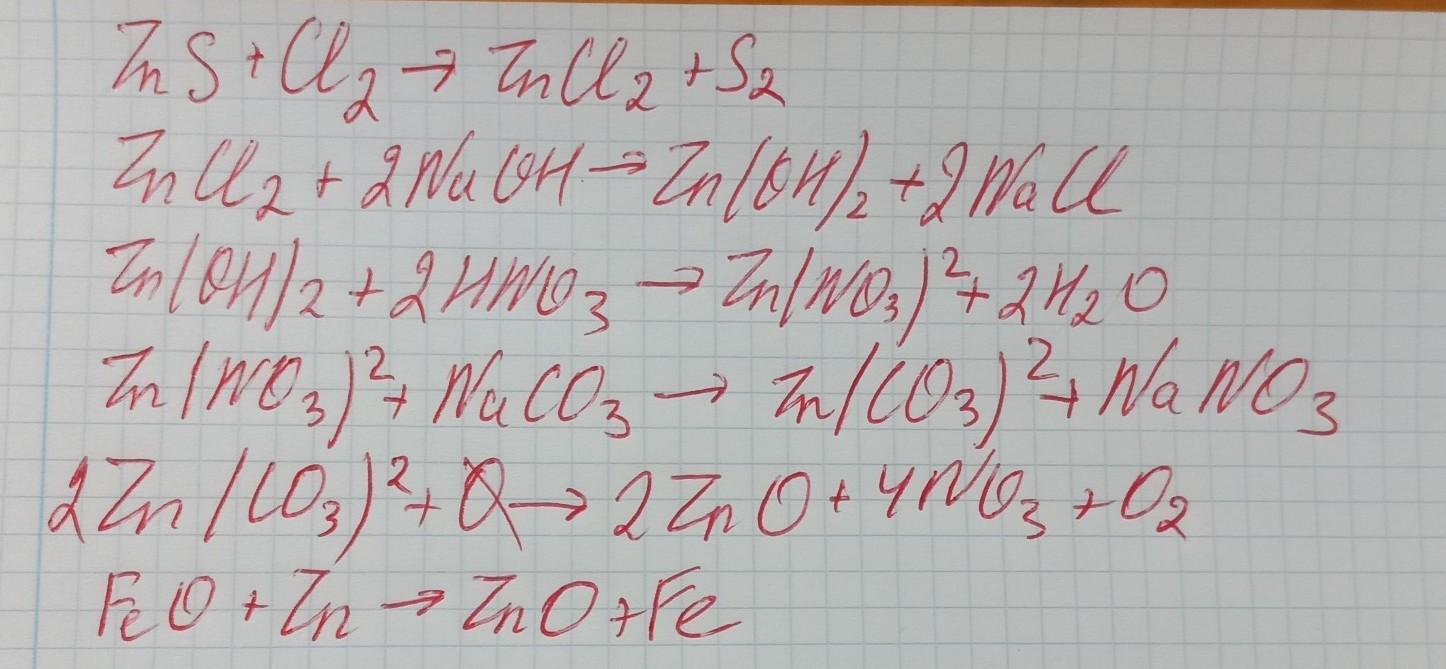 ZnS + Cl₂ → ZnCl₂ + S₂
ZnCl₂ + 2NaOH → Zn(OH)₂ + 2NaCl
Zn(OH)₂ + 2HNO₃ → Zn(NO₃)² + 2H₂O
Zn(NO₃)² + NaCO₃ → Zn(CO₃)² + NaNO₃
2Zn(CO₃)² + Q → 2ZnO + 4NO₃ + O₂
FeO + Zn → ZnO + Fe